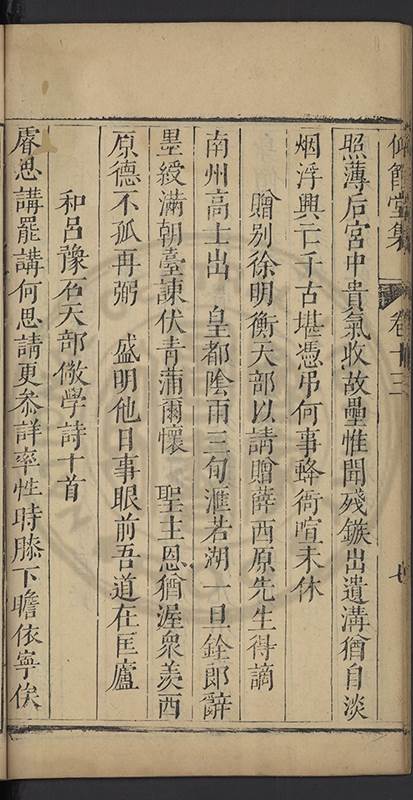 仰節堂集　卷十三　七
照薄后宮中貴氣收故壘惟聞殘鏃出遺溝猶自淡
烟浮興亡千古堪憑弔何事蜂衙喧未休
贈別徐明衡天部以請贈薛西原先生得謫
南州高士出　皇都陰雨三旬滙若湖一旦銓郎辭
墨綬滿朝臺諫伏青蒲爾懷　聖主恩猶渥衆羨西
原德不孤再弼　盛明他日事眼前吾道在匡廬
和呂豫石天部儆學詩十首
屢思講罷講何思請更叅詳率性時膝下瞻依寧俟